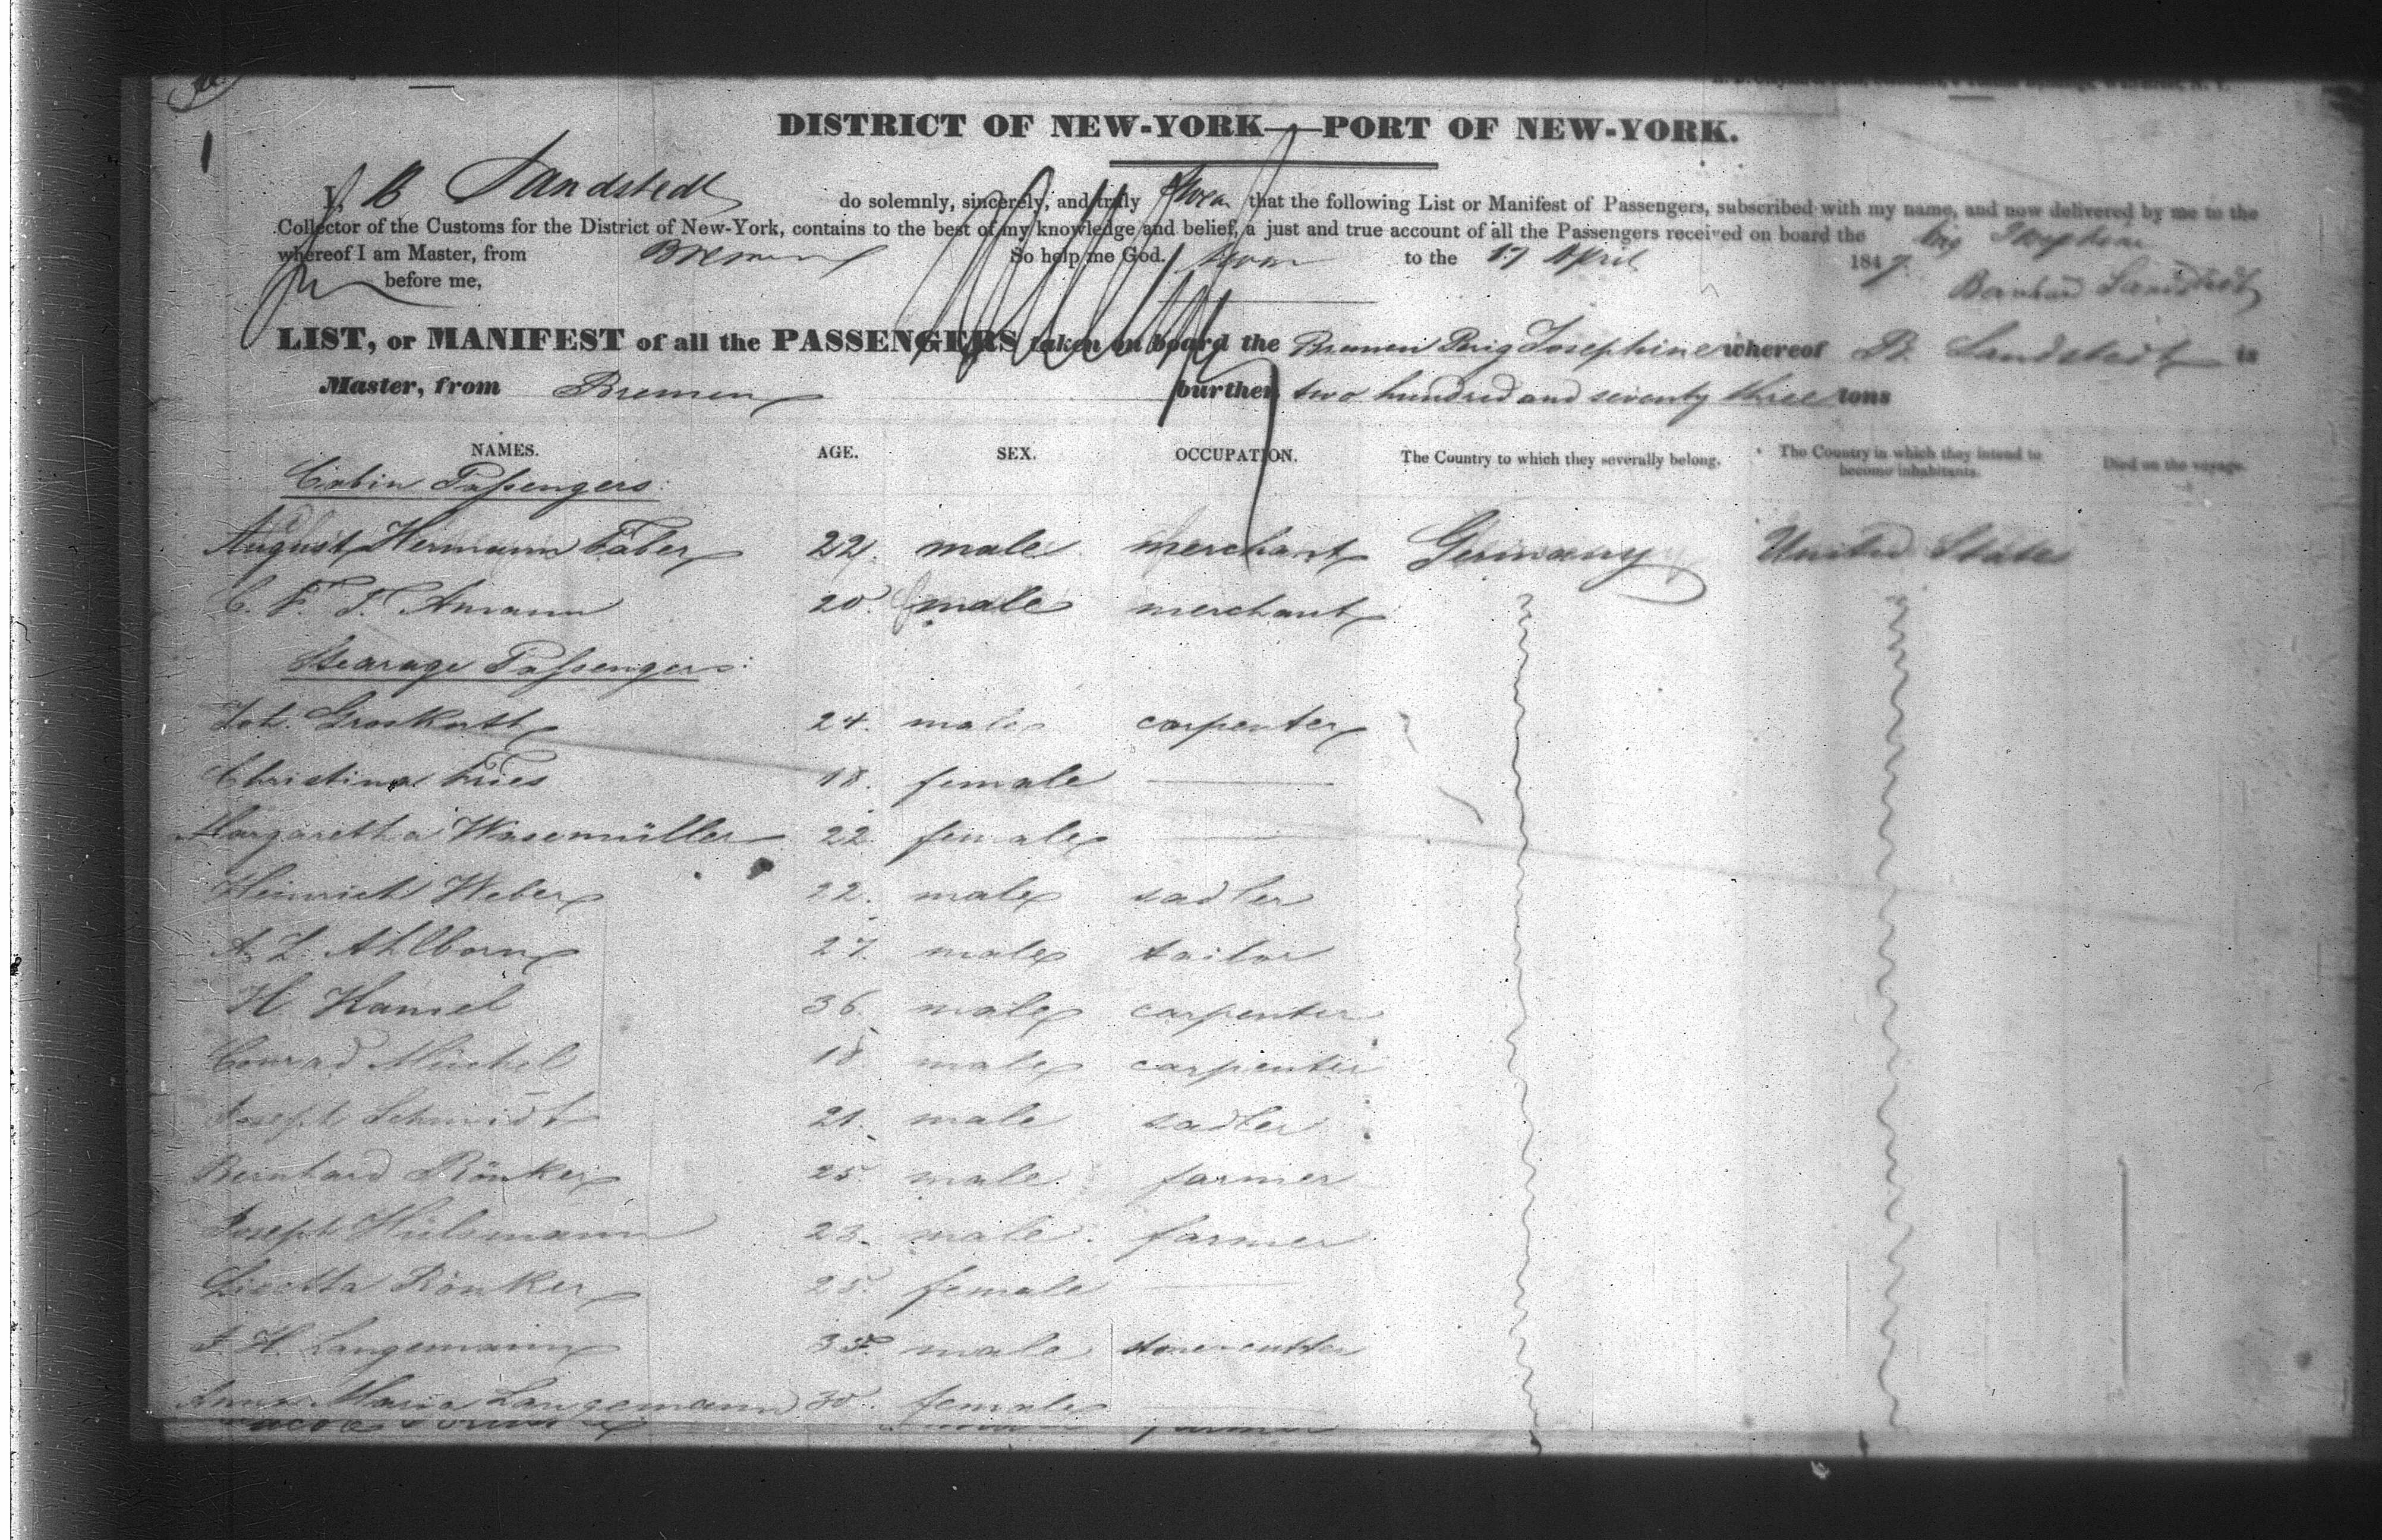 DISTRICT OF NEW-YORK—PORT OF NEW-YORK.
I, B Sandstedt do solemnly, sincerely, and truly swear that the following List or Manifest of Passengers, subscribed with my name, and now delivered by me to the
Collector of the Customs for the District of New-York, contains to the best of my knowledge and belief, a just and true account of all the Passengers received on board the brig Josephine
whereof I am Master, from Bremen So help me God. Sworn to the 17 April 1847.
before me, Bernhard Sandstedt
LIST, or MANIFEST of all the PASSENGERS taken on board the Bremen Brig Josephine whereof B. Sandstedt is
Master, from Bremen burthen two hundred and seventy three tons
NAMES. AGE. SEX. OCCUPATION. The Country to which they severally belong. The Country in which they intend to become inhabitants. Died on the voyage.
Cabin Passengers:
August Hermann Faber 22. male merchant Germany United States
C. F. T. Amann 20. male merchant
Stearage Passengers:
Joh. Groskurth 24. male carpenter
Christina Fries 18. female
Margaretha Wasemüller 22. female
Heinrich Weber 22. male sadler
A. L. Ahlborn 27. male tailor
H. Hansel 36. male carpenter
Conrad 18 male carpenter
Joseph Schmidt 21. male sadler
Bernhard Rönker 25. male farmer
Joseph Hülsmann 23. male. farmer
Lisetta Rönker 25. female
F. H. Langemann male stonecutter
Anna Maria Langemann 30. female
farmer